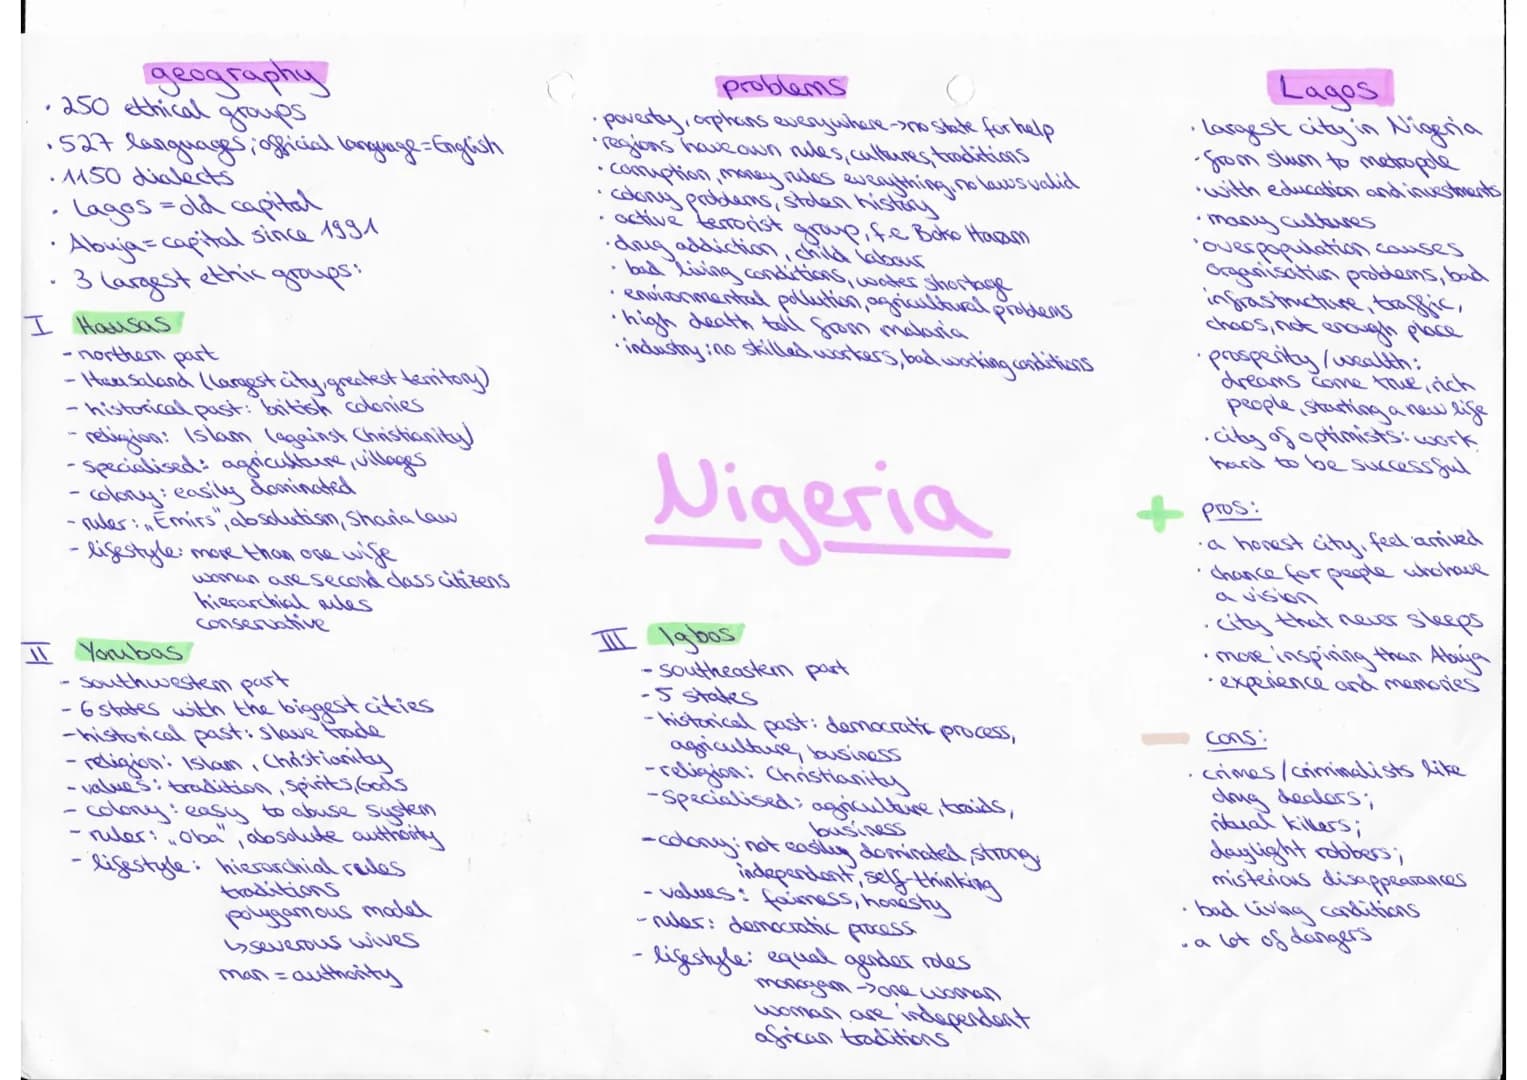 geography
· 250 ethical groups
· 527 languages; official language=English
· 1150 dialects
· Lagos = old capital
· Abuja= capital since 1991
· 3 largest ethic groups:
I Hausas
- northern part
- Hausaland (largest city, greatest territory)
- historical past: british colonies
- religion: Islam (against Christianity)
- specialised: agriculture, villages
- colony: easily dominated
- ruler: „Emirs", absolutism, Sharia Law
- lifestyle: more than one wife
woman are second class citizens
hierarchial rules
conservative
II Yorubas
- southwestern part
- 6 states with the biggest cities
- historical past: slave trade
- religion: Islam, Christianity
- values: tradition, spirits, Gods
- colony: easy to abuse system
- ruler: „Oba", absolute authority
- lifestyle: hierarchial rules
traditions
polygamous model
↳severous wives
man = authority
problems
· poverty, orphans everywhere->no state for help
· regions have own rules, cultures, traditions
· corruption, money rules everything, no laws valid
· colony problems, stolen history
· active terrorist group, f.e Boko Haram
· drug addiction, child labour
· bad living conditions, water shortage
· environmental pollution, agricultural problems
· high death toll from malaria
· industry: no skilled workers, bad working conditions
Nigeria
III Igbos
- southeastern part
- 5 states
- historical past: democratic process,
agriculture, business
- religion: Christianity
- specialised: agriculture, traids,
business
- colony: not easily dominated, strong,
independent, self-thinking
- values: fairness, honesty
- ruler: democratic process
- lifestyle: equal gender roles
monogam -> one woman
woman are independent
african traditions
Lagos
· largest city in Nigeria
· from slum to metropole
· with education and investments
· many cultures
· overpopulation causes
organisation problems, bad
infrastructure, traffic,
chaos, not enough place
· prosperity/wealth:
dreams come true, rich
people, starting a new life
· city of optimists: work
hard to be successful
+ pros:
· a honest city, feel arrived
· chance for people who have
a vision
· city that never sleeps
· more inspiring than Abuja
· experience and memories
- cons:
· crimes/criminalists like
drug dealers;
ritual killers;
daylight robbers;
misterious disappearances
· bad living conditions
· a lot of dangers